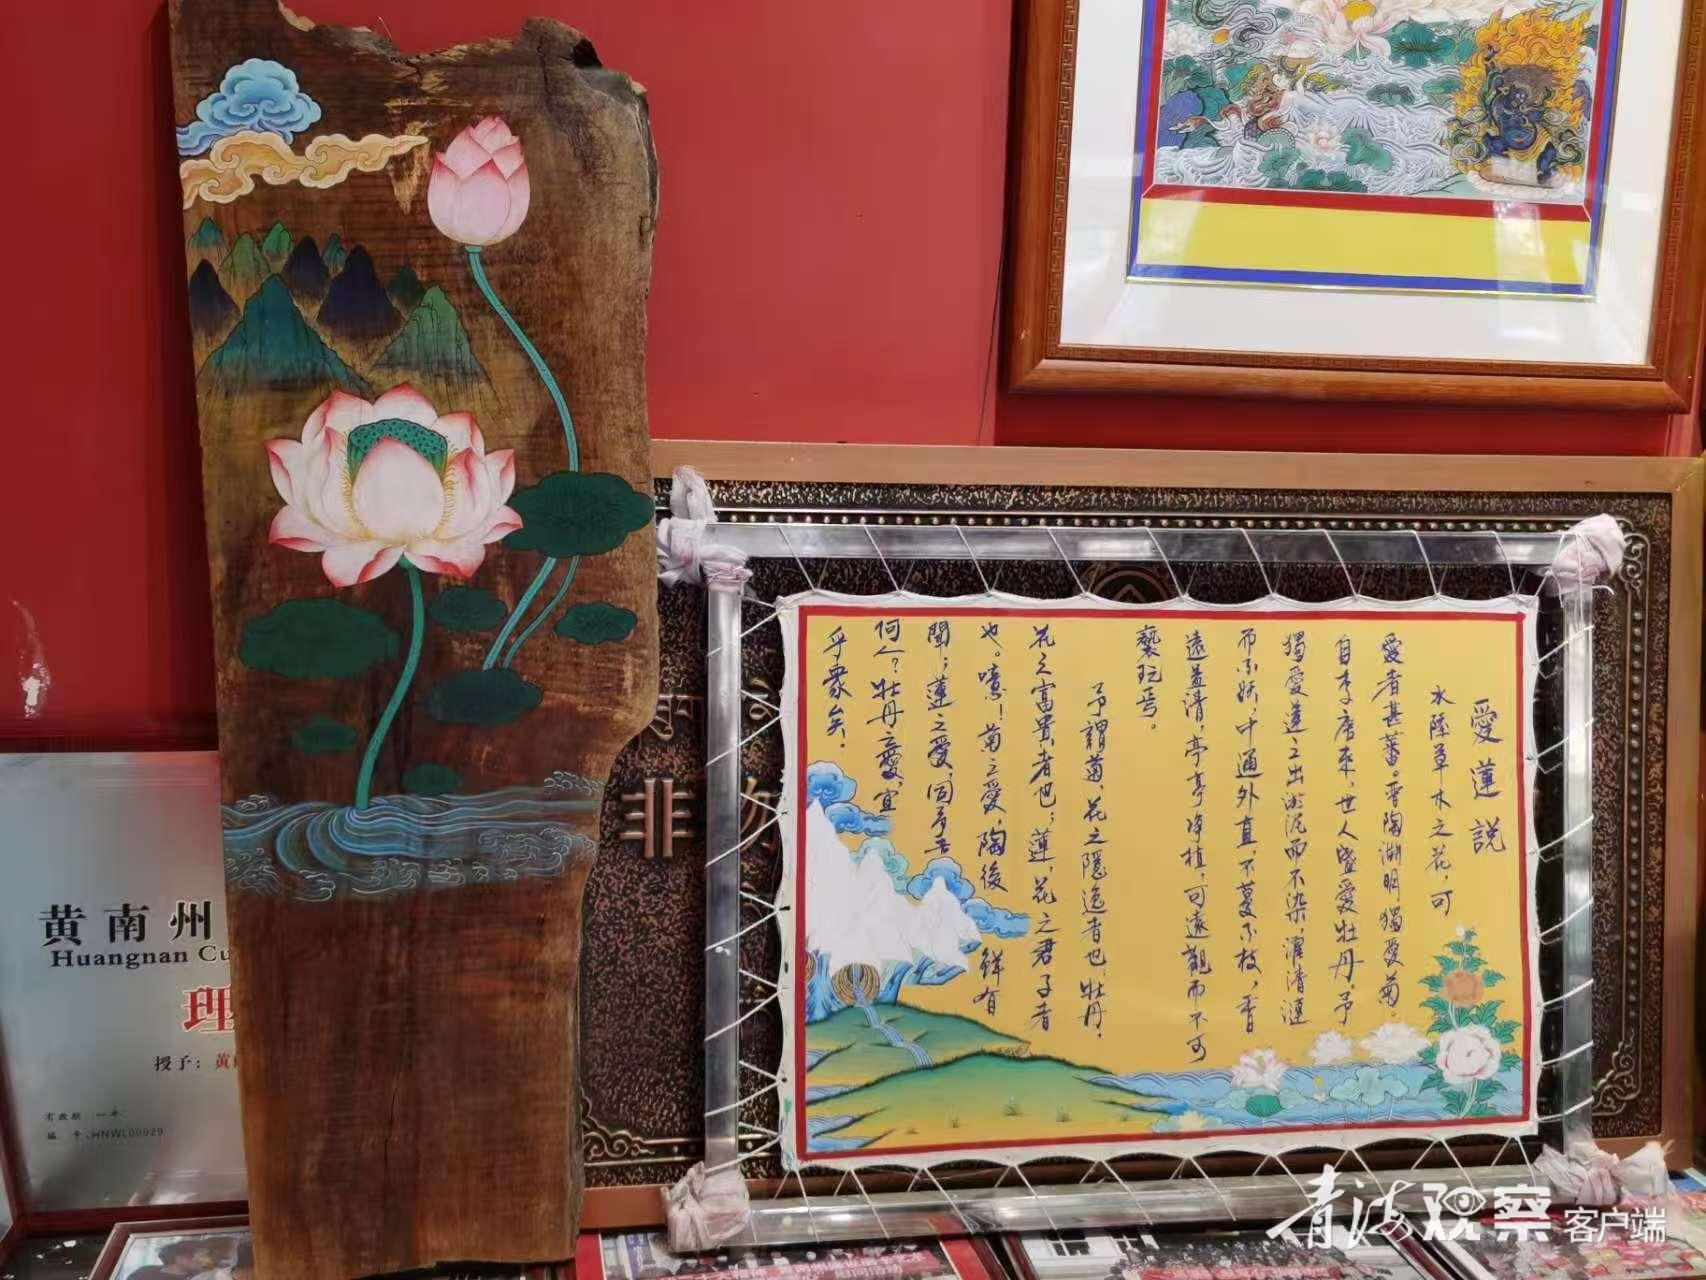 愛蓮説
水陸草木之花，可
愛者甚蕃。晋陶淵明獨愛菊。
自李唐来，世人盛愛牡丹。予
獨愛蓮之出淤泥而不染，濯清漣
而不妖，中通外直，不蔓不枝，香
遠益清，亭亭净植，可遠觀而不可
褻玩焉。
予謂菊，花之隱逸者也；牡丹，
花之富貴者也；蓮，花之君子者
也。噫！菊之愛，陶後鮮有
聞；蓮之愛，同予者
何人？牡丹之愛，宜
乎衆矣。
非
勿
黄南州
Huangnan Cu
理
授予：黄
有效期：一年
编号：HNWL00029
青海观察 客户端